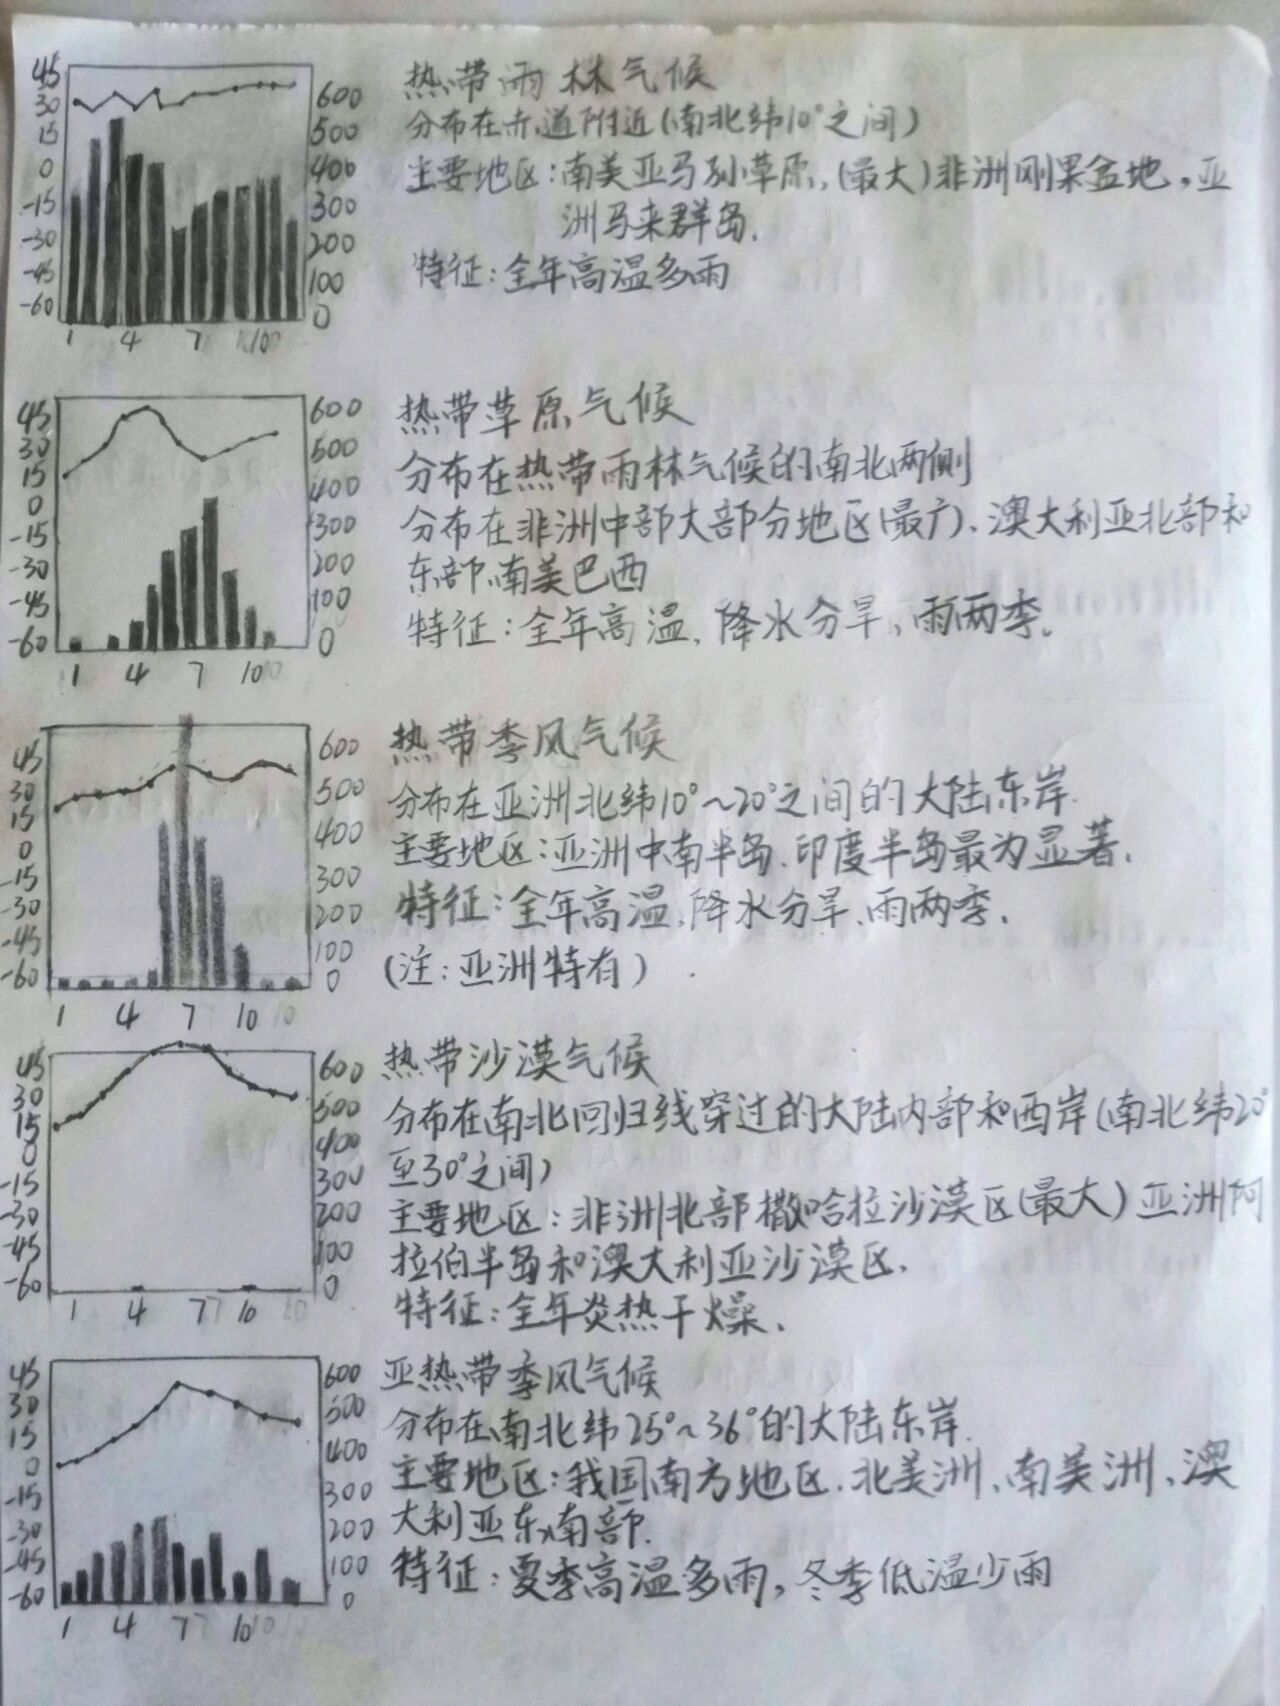 45
30
15
0
-15
-30
-45
-60
600
500
400
300
200
100
0
1 4 7 10
热带雨林气候
分布在赤道附近(南北纬10°之间)
主要地区:南美亚马孙草原,(最大)非洲刚果盆地,亚
洲马来群岛.
特征:全年高温多雨
45
30
15
0
-15
-30
-45
-60
600
500
400
300
200
100
0
1 4 7 10
热带草原气候
分布在热带雨林气候的南北两侧
分布在非洲中部大部分地区(最广)、澳大利亚北部和
东部、南美巴西
特征:全年高温,降水分旱、雨两季.
45
30
15
0
-15
-30
-45
-60
600
500
400
300
200
100
0
1 4 7 10
热带季风气候
分布在亚洲北纬10°~20°之间的大陆东岸.
主要地区:亚洲中南半岛、印度半岛最为显著.
特征:全年高温,降水分旱、雨两季.
(注:亚洲特有)
45
30
15
0
-15
-30
-45
-60
600
500
400
300
200
100
0
1 4 7 10
热带沙漠气候
分布在南北回归线穿过的大陆内部和西岸(南北纬20°
至30°之间)
主要地区:非洲北部撒哈拉沙漠区(最大)亚洲阿
拉伯半岛和澳大利亚沙漠区.
特征:全年炎热干燥.
45
30
15
0
-15
-30
-45
-60
600
500
400
300
200
100
0
1 4 7 10
亚热带季风气候
分布在南北纬25°~36°的大陆东岸.
主要地区:我国南方地区.北美洲、南美洲、澳
大利亚东南部.
特征:夏季高温多雨,冬季低温少雨